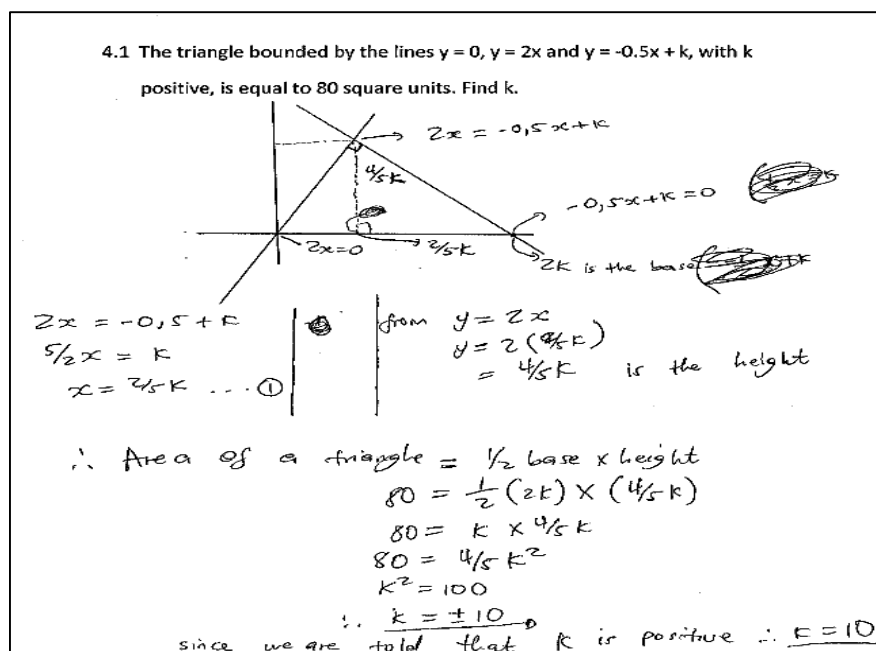 4.1 The triangle bounded by the lines y = 0, y = 2x and y = -0.5x + k, with k
positive, is equal to 80 square units. Find k.
2x = -0,5x+k
4/5k
-0,5x+k=0
2x=0
2/5k
2k is the base
2x = -0,5+k
5/2x = k
x = 2/5k ... ①
from y = 2x
y = 2(2/5k)
= 4/5k is the height
∴ Area of a triangle = 1/2 base x height
80 = 1/2 (2k) x (4/5k)
80 = k x 4/5k
80 = 4/5k²
k² = 100
∴ k = ±10
since we are told that k is positive ∴ k = 10